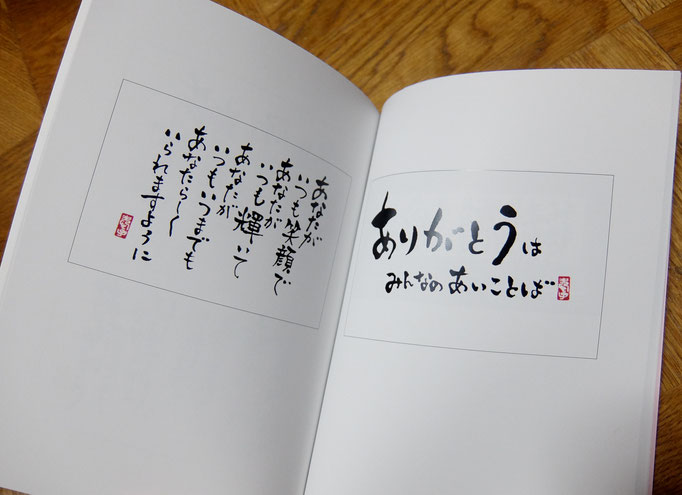 あなたが
いつも笑顔で
あなたが
いつも輝いて
あなたが
いつもいつまでも
あなたらしく
いられますように
ありがとうは
みんなのあいことば